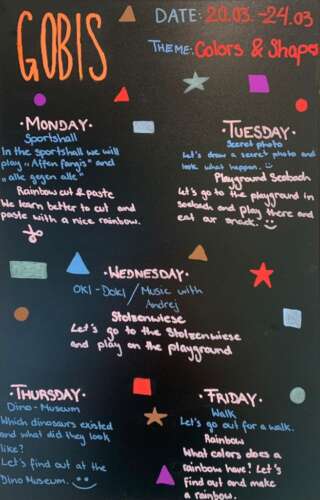 GOBIS
DATE: 20.03.-24.03
THEME: Colors & Shapes
·MONDAY·
Sportshall
In the sportshall we will
play „Affen fangis" and
„alle gegen alle"
Rainbow cut & paste
We learn better to cut and
paste with a nice rainbow.
·TUESDAY·
Secret photo
Let's draw a secret photo and
look what happen.
Playground Seebach
Let's go to the playground in
seebach and play there and
eat our snack.
·WEDNESDAY·
OKI-DOKI / Music with
Andrej
Stolzenwiese
Let's go to the Stolzenwiese
and play on the playground
·THURSDAY·
Dino-Museum
Which dinosaurs existed
and what did they look
like?
Let's find out at the
Dino Museum.
·FRIDAY·
Walk
Let's go out for a walk.
Rainbow
What colors does a
rainbow have? Let's
find out and make
a rainbow.